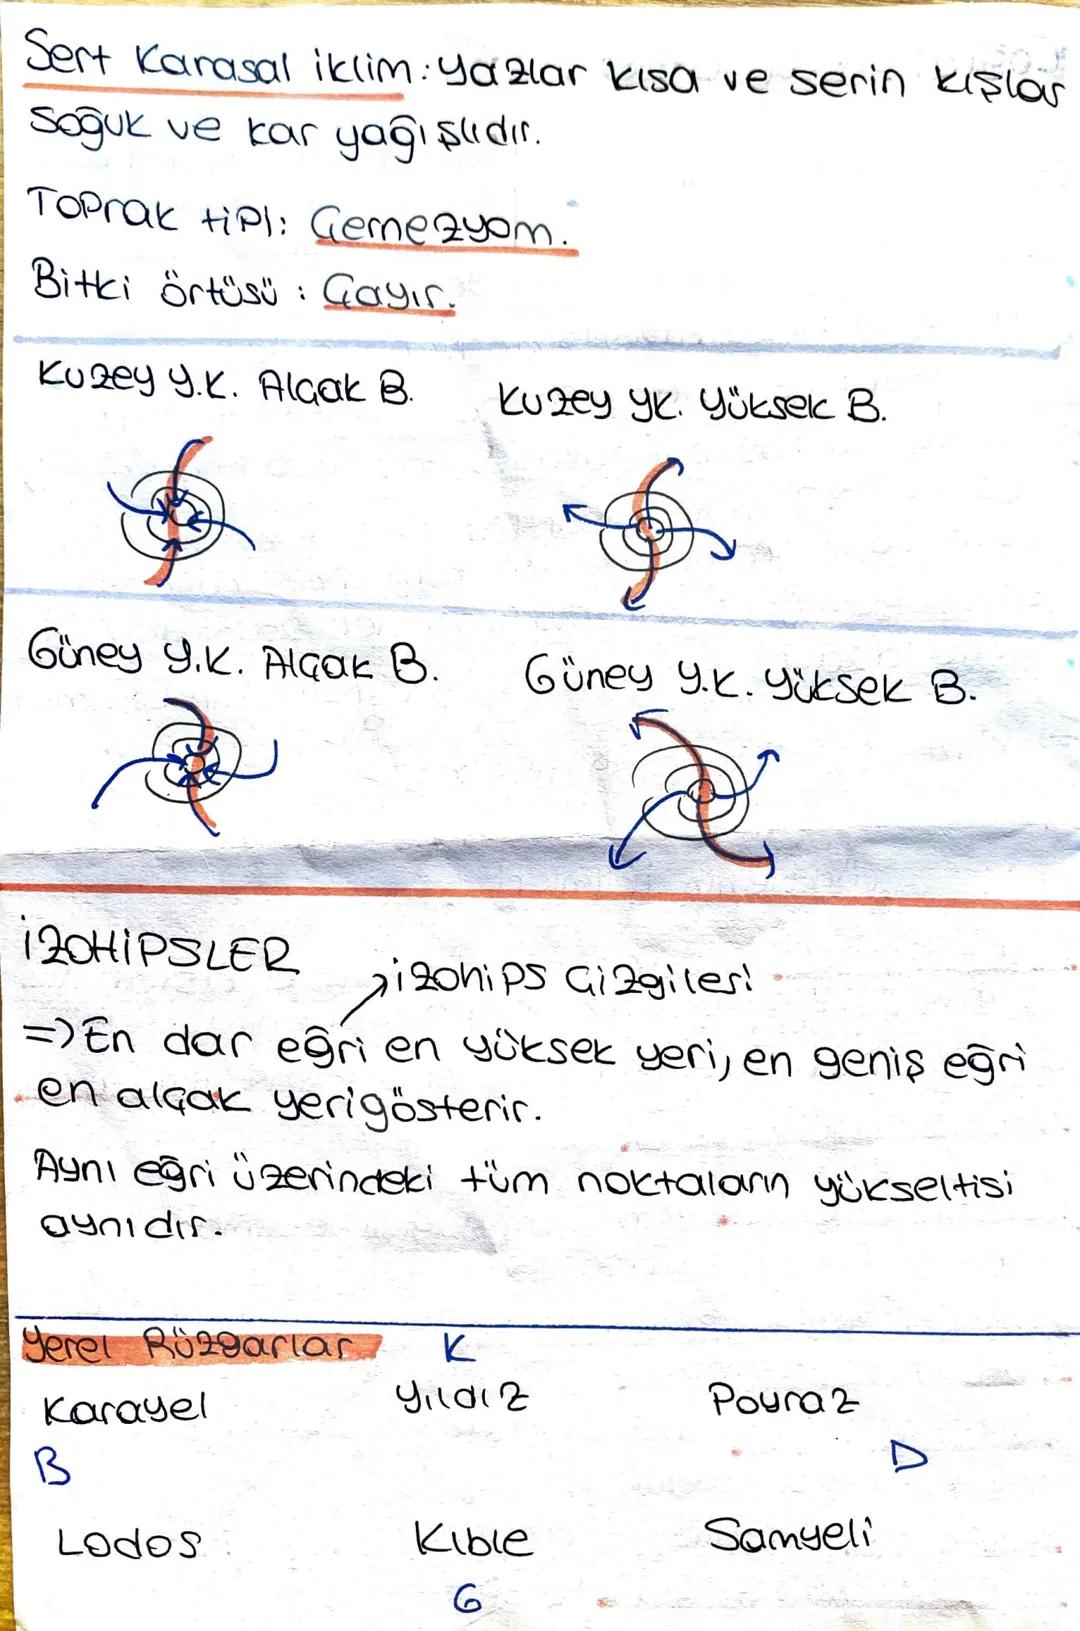 Sert Karasal iklim: Yazlar kısa ve serin kışlar
soğuk ve kar yağışlıdır.
Toprak tipi: Çernezyom.
Bitki örtüsü: Çayır.
Kuzey Y.K. Alçak B.
Kuzey YK. Yüksek B.
Güney Y.K. Alçak B.
Güney Y.K. Yüksek B.
İZOHİPSLER
izohips Çizgileri
=> En dar eğri en yüksek yeri, en geniş eğri
en alçak yeri gösterir.
Aynı eğri üzerindeki tüm noktaların yükseltisi
aynıdır.
Yerel Rüzgarlar K
Karayel Yıldız Poyraz
B D
Lodos Kıble Samyeli
G